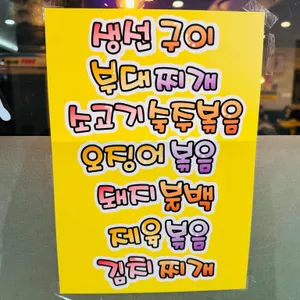 생선 구이
부대찌개
소고기 숙주볶음
오징어 볶음
돼지 불백
제육 볶음
김치 찌개